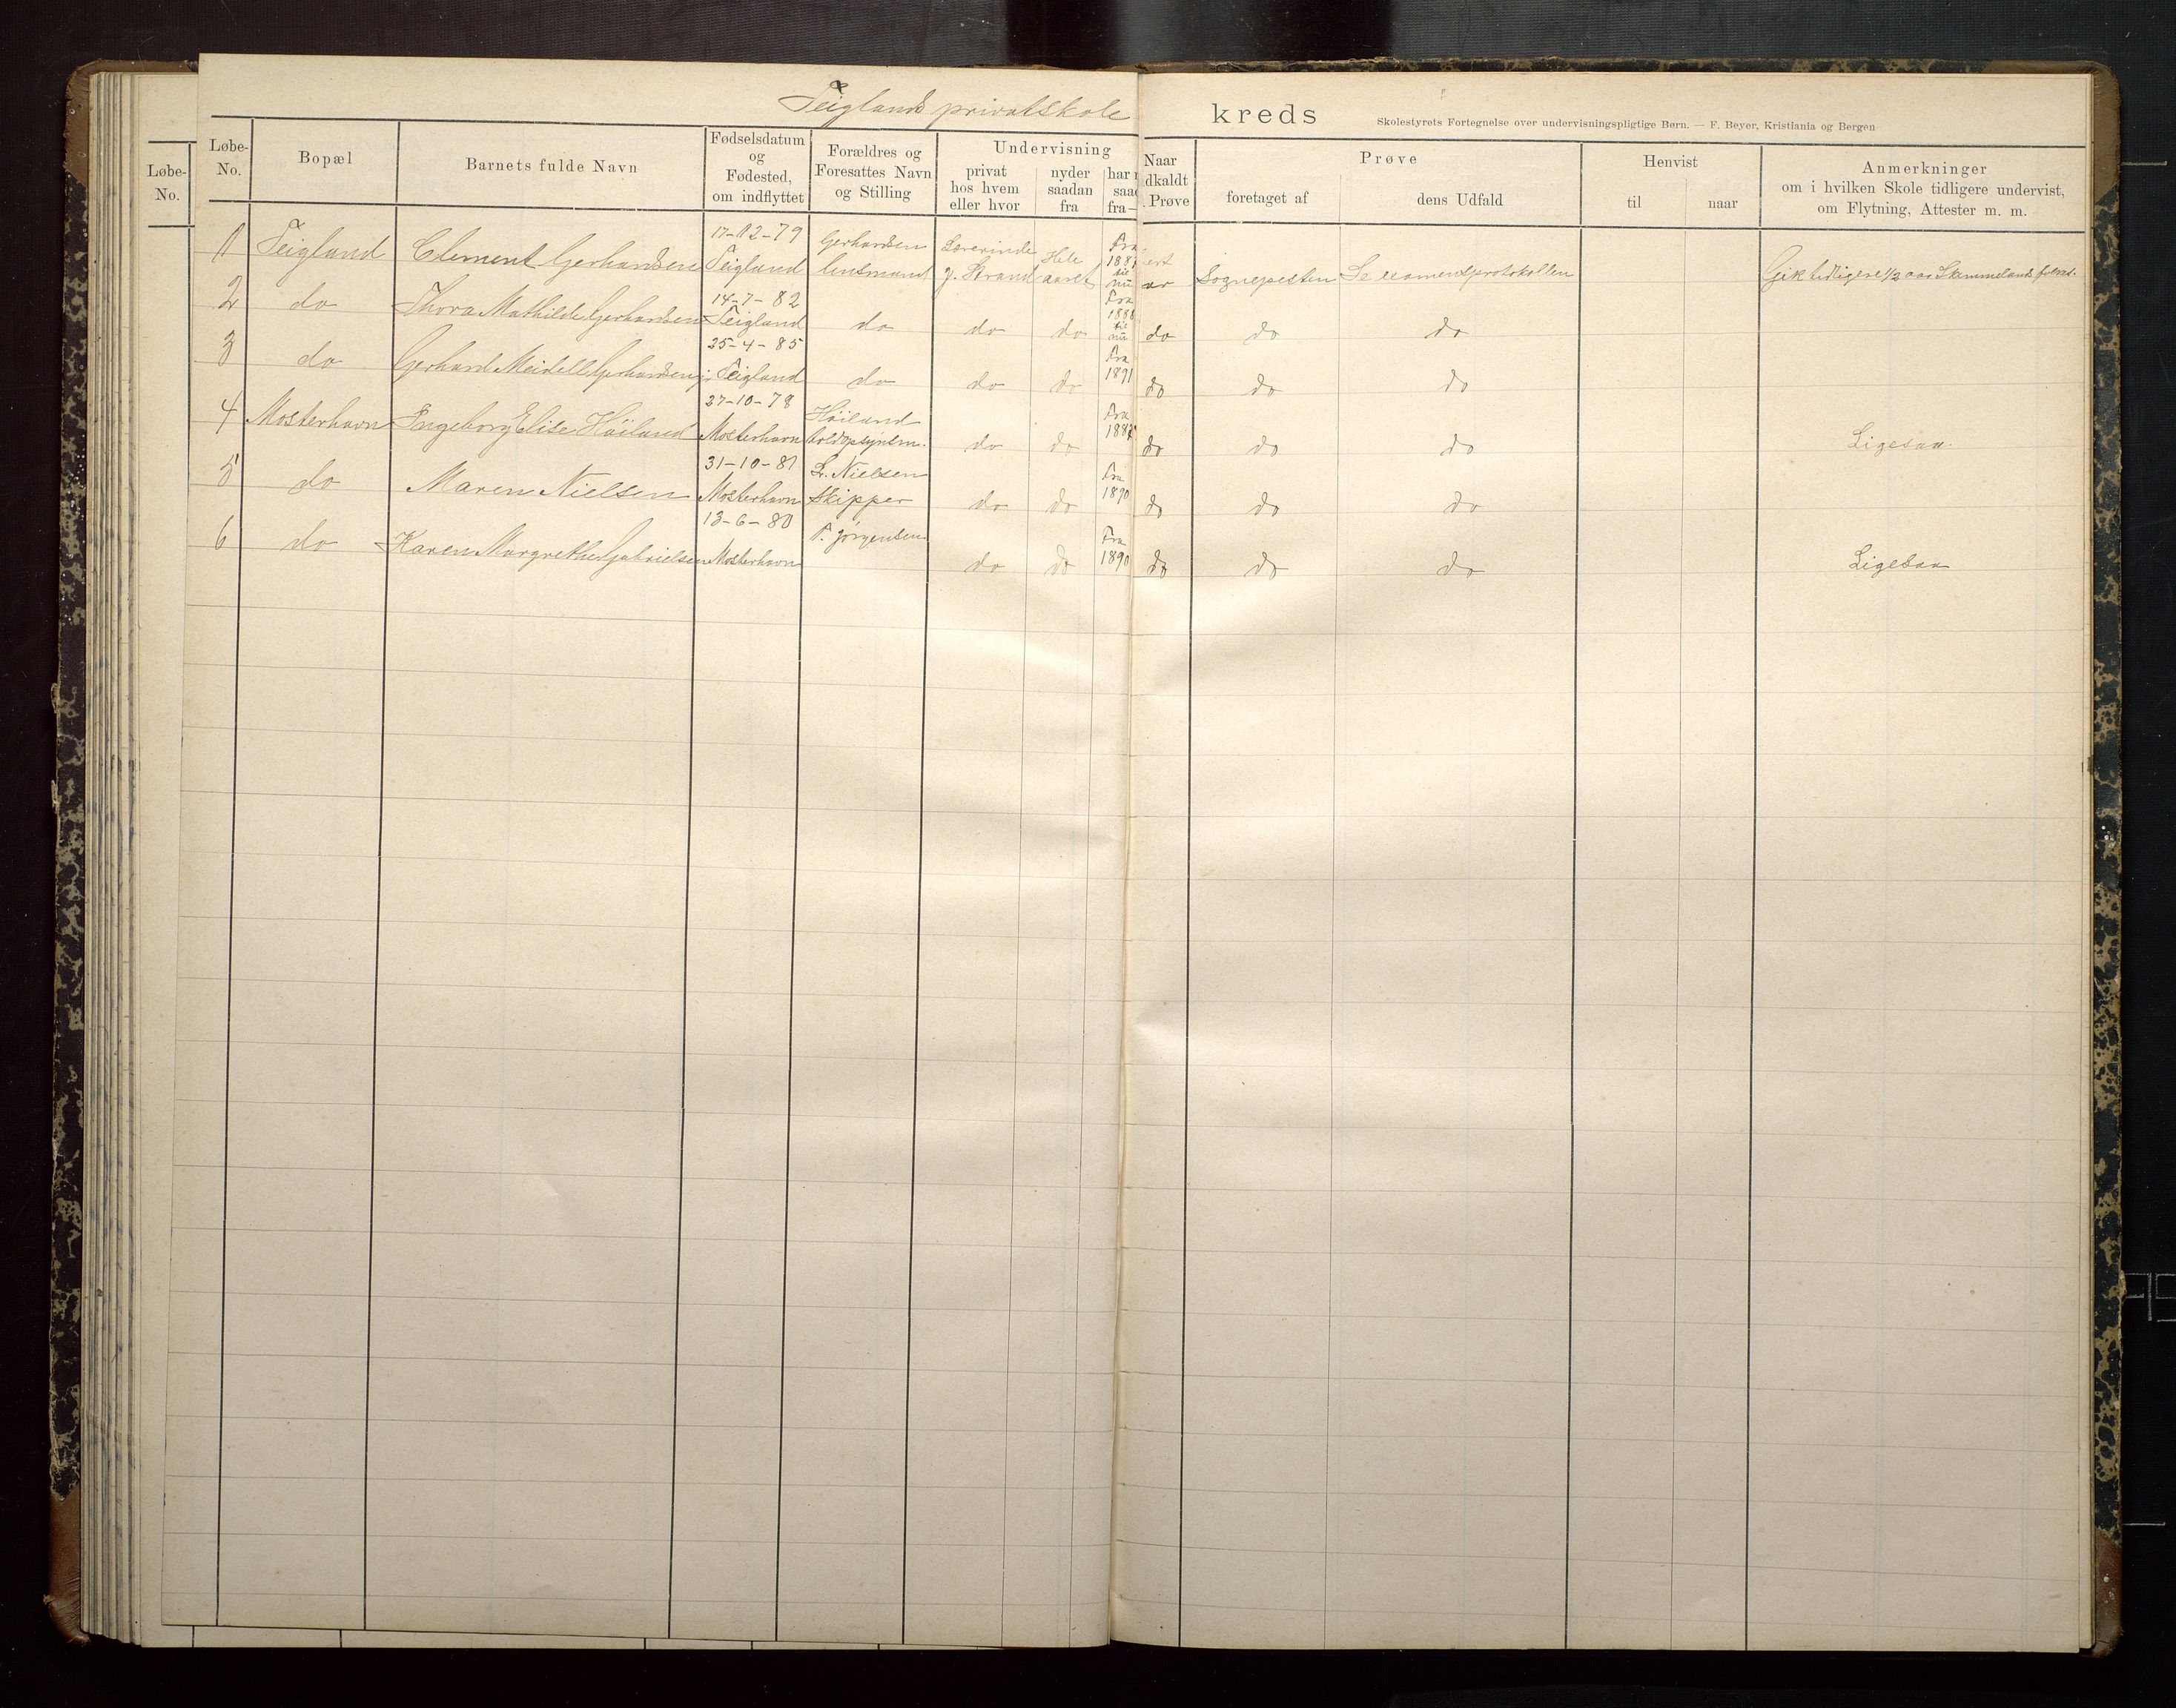 Teiglands privatskole kreds
Skolestyrets Fortegnelse over undervisningspligtige Børn. — F. Beyer, Kristiania og Bergen
Løbe-No.
Løbe-No. Bopæl Barnets fulde Navn Fødselsdatum og Fødested, om indflyttet Forældres og Foresattes Navn og Stilling Undervisning privat hos hvem eller hvor nyder saadan fra har saa fra— Naar dkaldt Prøve Prøve foretaget af dens Udfald Henvist til naar Anmerkninger om i hvilken Skole tidligere undervist, om Flytning, Attester m. m.
1 Teigland Clement Gerhardsen 17-12-79 Teigland Gerhardsen lensmand Lærerinde J. Strand Hele aaret Fra til nu Sognepresten Se examensprotokollen Gik tidligere 1/2 aar
2 do Thora Mathilde Gerhardsen 14-7-82 Teigland do do do Fra 1888 til nu do do do
3 do Gerhard Meidell Gerhardsen jr 25-4-85 Teigland do do do Fra 1891 do do do
4 Mosterhavn Ingeborg Elise Höiland 27-10-78 Mosterhavn Höiland do do Fra do do do Ligesaa
5 do Maren Nielsen 31-10-81 Mosterhavn L. Nielsen Skipper do do Fra 1890 do do do
6 do Karen Margrethe Gabrielsen 13-6-80 Mosterhavn Jörgensen do do Fra 1890 do do do Ligesaa